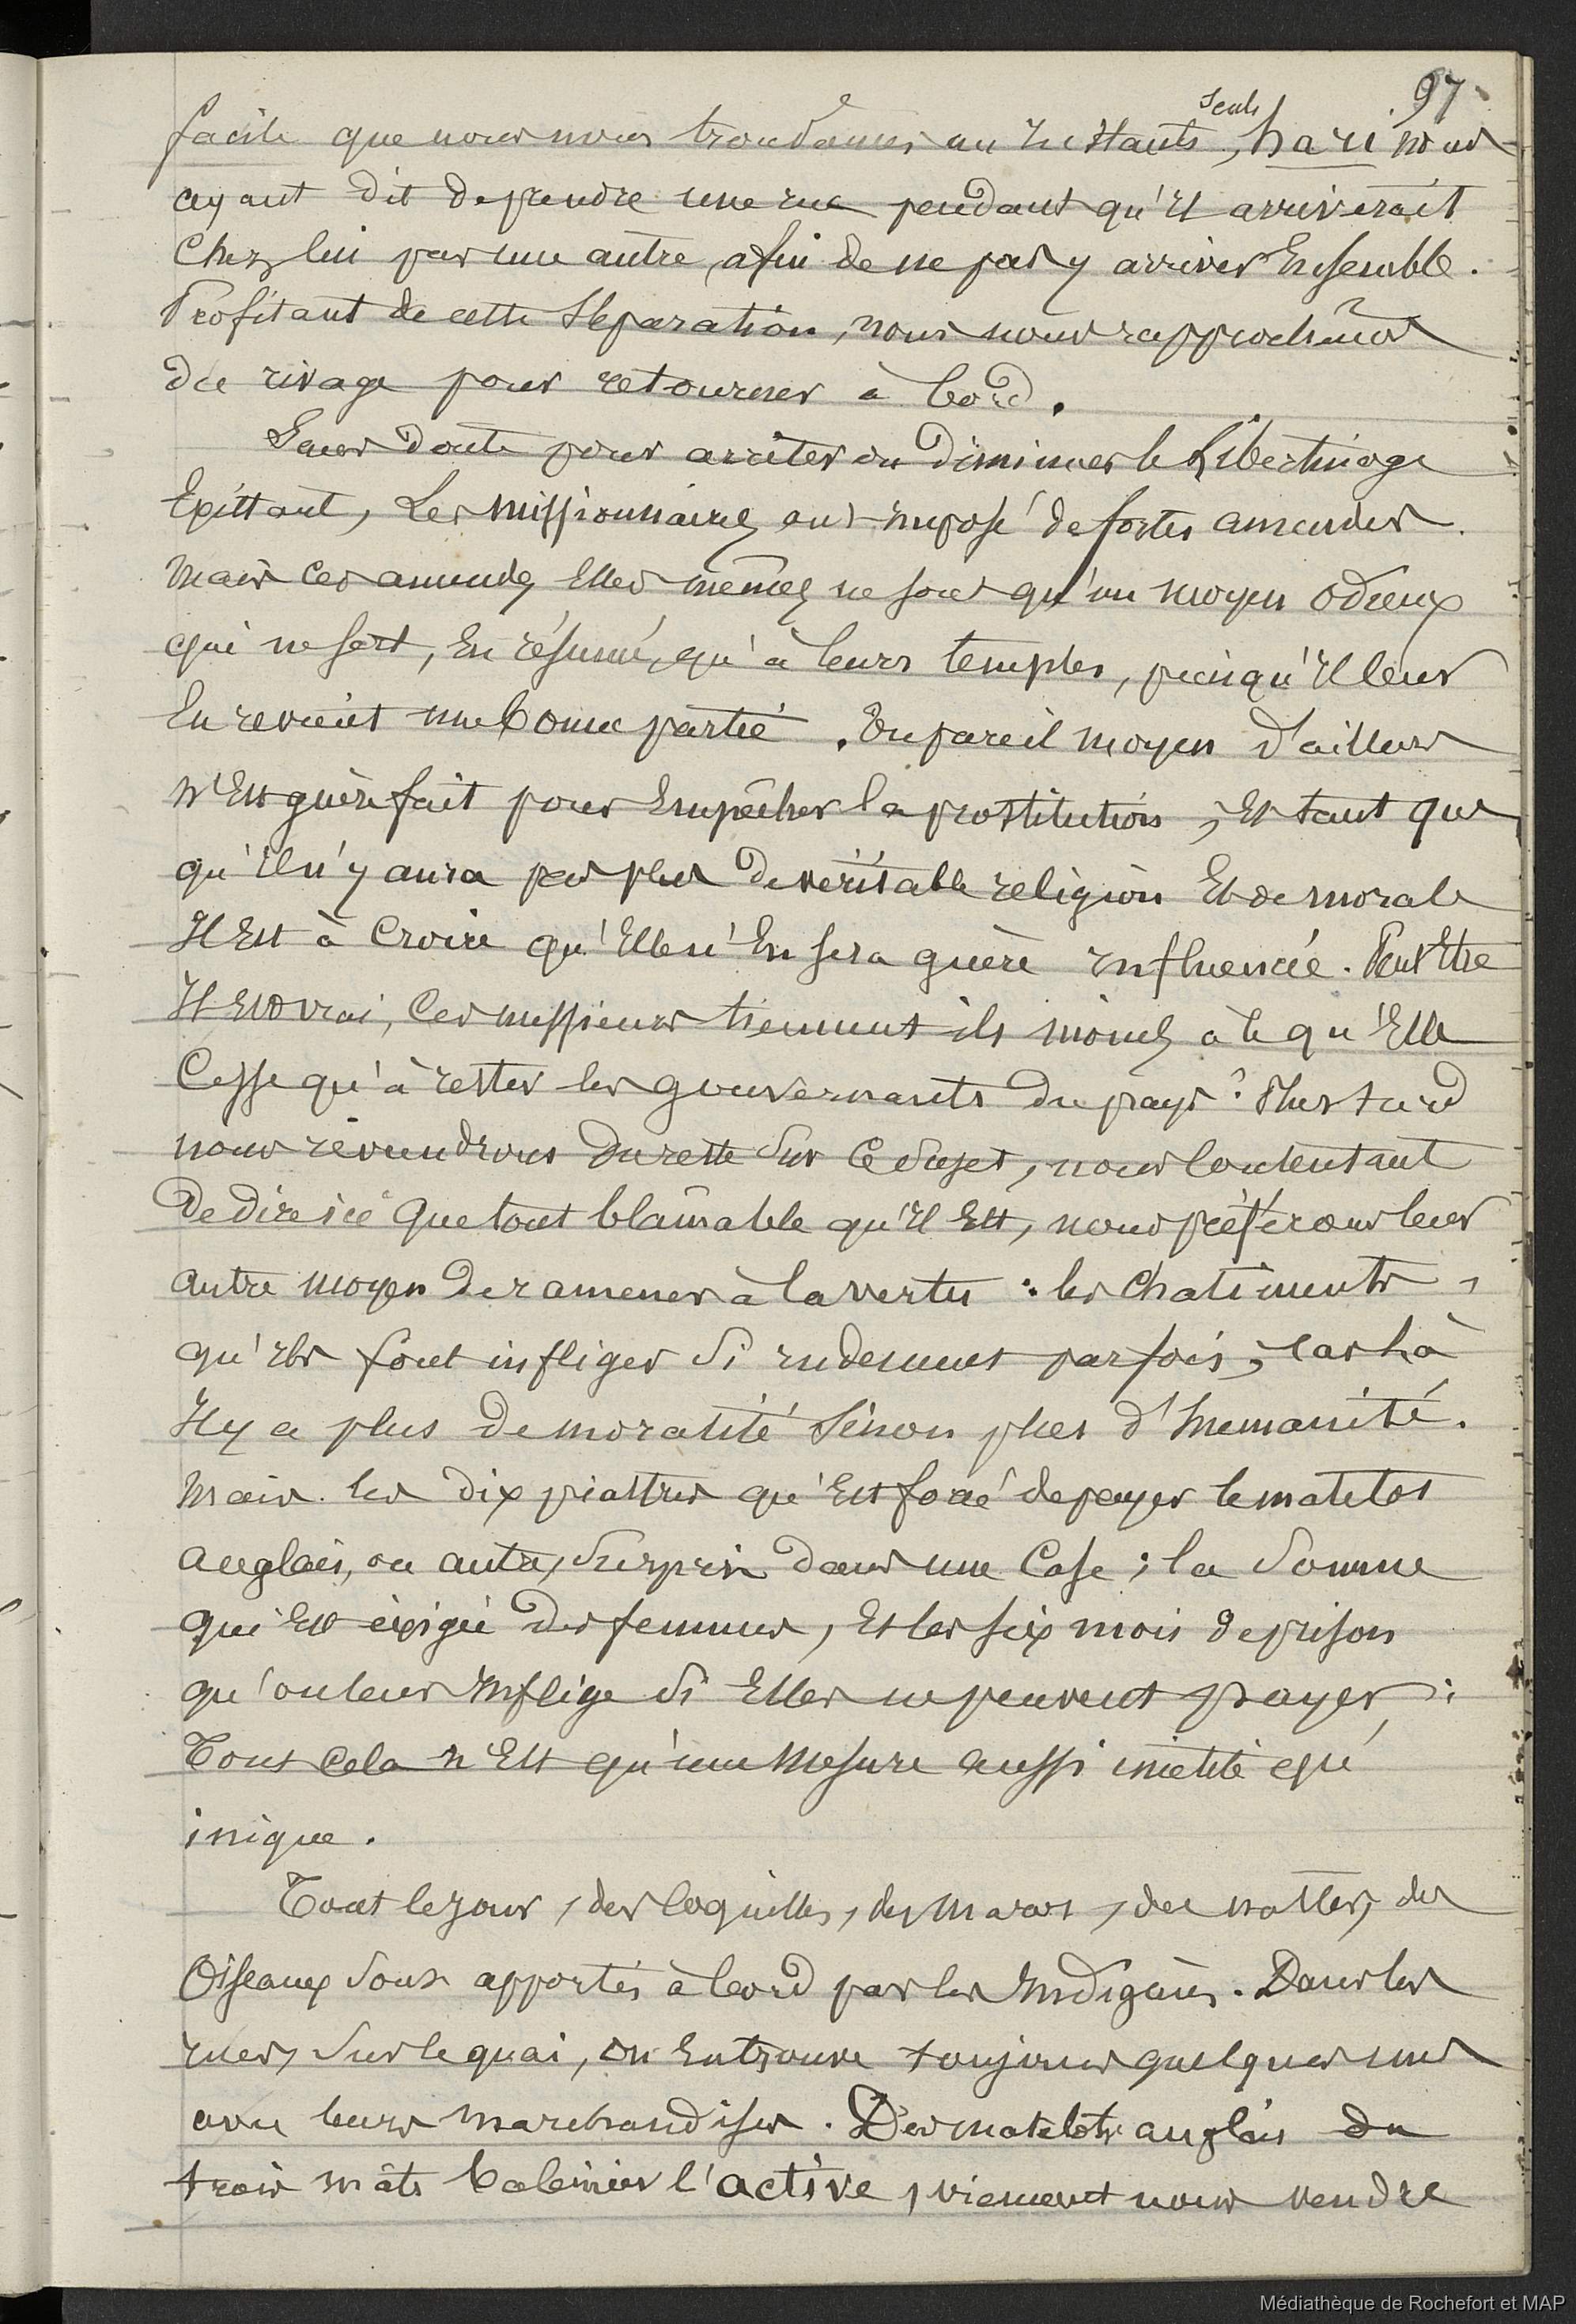 97
facile que nous nous trouvâmes un instants seuls, hari nous
ayant dit de prendre une rue pendant qu'il arriverait
Chez lui par une autre, afin de ne pas y arriver Ensemble.
Profitant de cette séparation, nous nous rapprochâmes
du rivage pour retourner à bord.
Sans doute pour arrêter ou diminuer le Libertinage
Existant, Les missionnaires ont imposé de fortes amendes.
Mais ces amendes Elles mêmes ne sont qu'un moyen odieux
qui ne sert, En résumé, qu'à leurs temples, puisqu'il leur
En revient une bonne partie. Un pareil moyen d'ailleurs
n'Est guère fait pour Empêcher la prostitution, Et tant que
qu'il n'y aura pas plus de véritable religion Et de morale
Il Est à Croire qu'Elle n'En sera guère influencée. Peut Etre
Il Est vrai, Ces messieurs tiennent ils moins à ce qu'Elle
Cesse qu'à rester les gouvernants du pays? Plus tard
nous reviendrons du reste sur Ce sujet, nous Contentant
De dire ici que tout blâmable qu'il Est, nous préférons leur
autre moyen de ramener à la vertu : les Chatiments,
qu'ils font infliger si rudement parfois, car là
Il y a plus de moralité sinon plus d'humanité.
Mais les dix piastres qu'Est forcé de payer le matelot
anglais, ou autre, surpris dans une Case; la somme
qui Est éxigée des femmes, Et les six mois de prison
qu'on leur inflige si Elles ne peuvent payer:
Tout Cela n'Est qu'une mesure aussi inutile qu'
inique.
Tout le jour, des Coquilles, des maros, des nattes, des
Oiseaux sont apportés à bord par les indigènes. Dans les
rues, sur le quai, on En trouve toujours quelques uns
avec leurs marchandises. Des matelots anglais du
trois mâts baleinier l'active, viennent nous vendre
Médiathèque de Rochefort et MAP